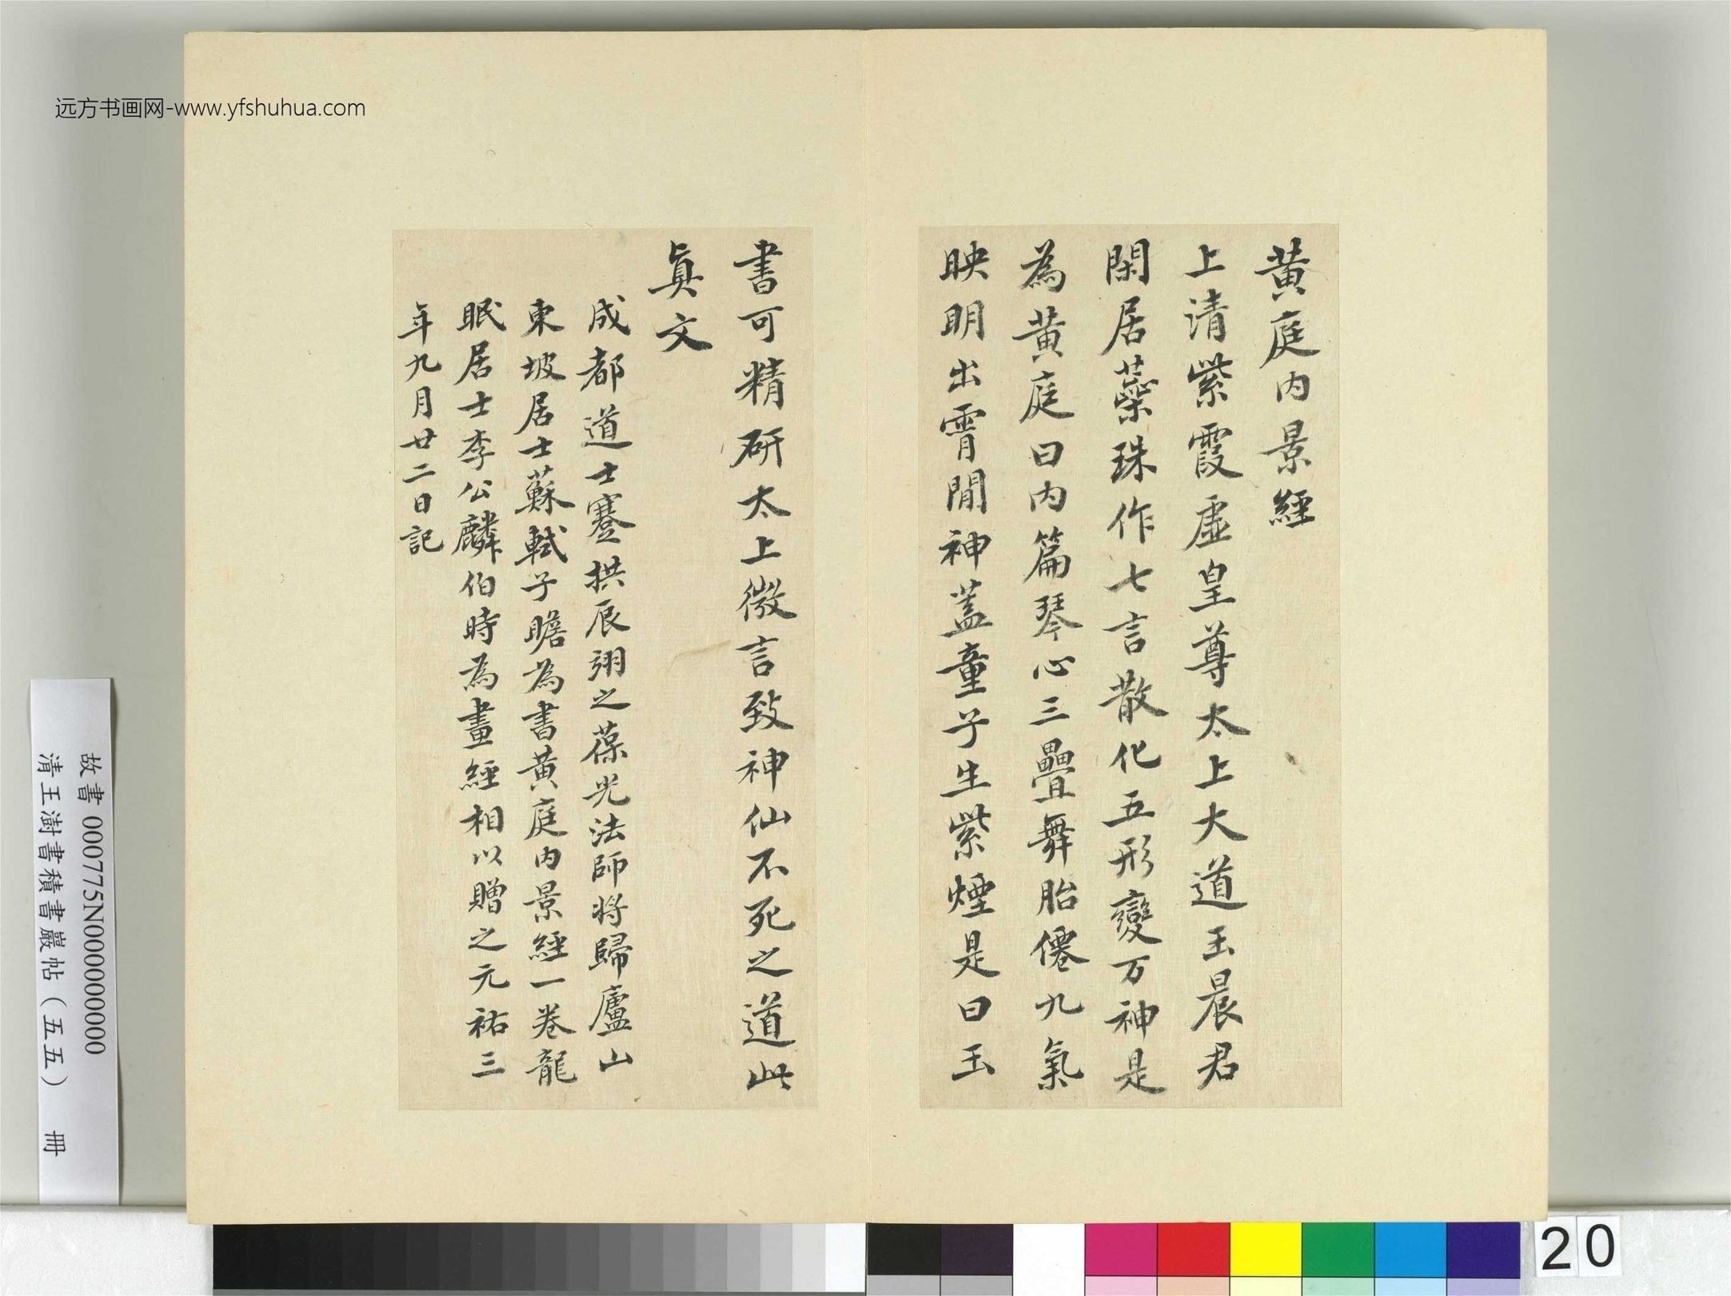 远方书画网-www.yfshuhua.com
黄庭内景經
上清紫霞虚皇尊太上大道玉晨君
閑居蘂珠作七言散化五形變万神是
為黄庭曰内篇琴心三疊舞胎僊九氣
映明出霄間神蓋童子生紫煙是曰玉
書可精研太上微言致神仙不死之道此
真文
成都道士蹇拱辰翊之葆光法師将歸廬山
東坡居士蘇軾子瞻為書黄庭内景經一卷龍
眠居士李公麟伯時為畫經相以贈之元祐三
年九月廿二日記
故書 000775N000000000
清王澍書積書巖帖(五五) 冊
20